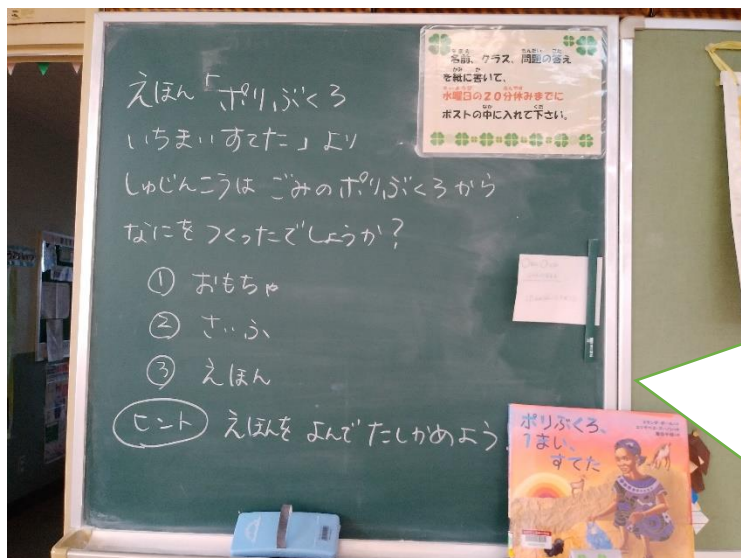 えほん「ポリぶくろ
いちまいすてた」より
しゅじんこうは ごみのポリぶくろから
なにを つくったでしょうか?
① おもちゃ
② さいふ
③ えほん
ヒント えほんを よんで たしかめよう
名前、クラス、問題の答え
を紙に書いて、
水曜日の20分休みまでに
ポストの中に入れて下さい。
ポリぶくろ、
1まい、
すてた